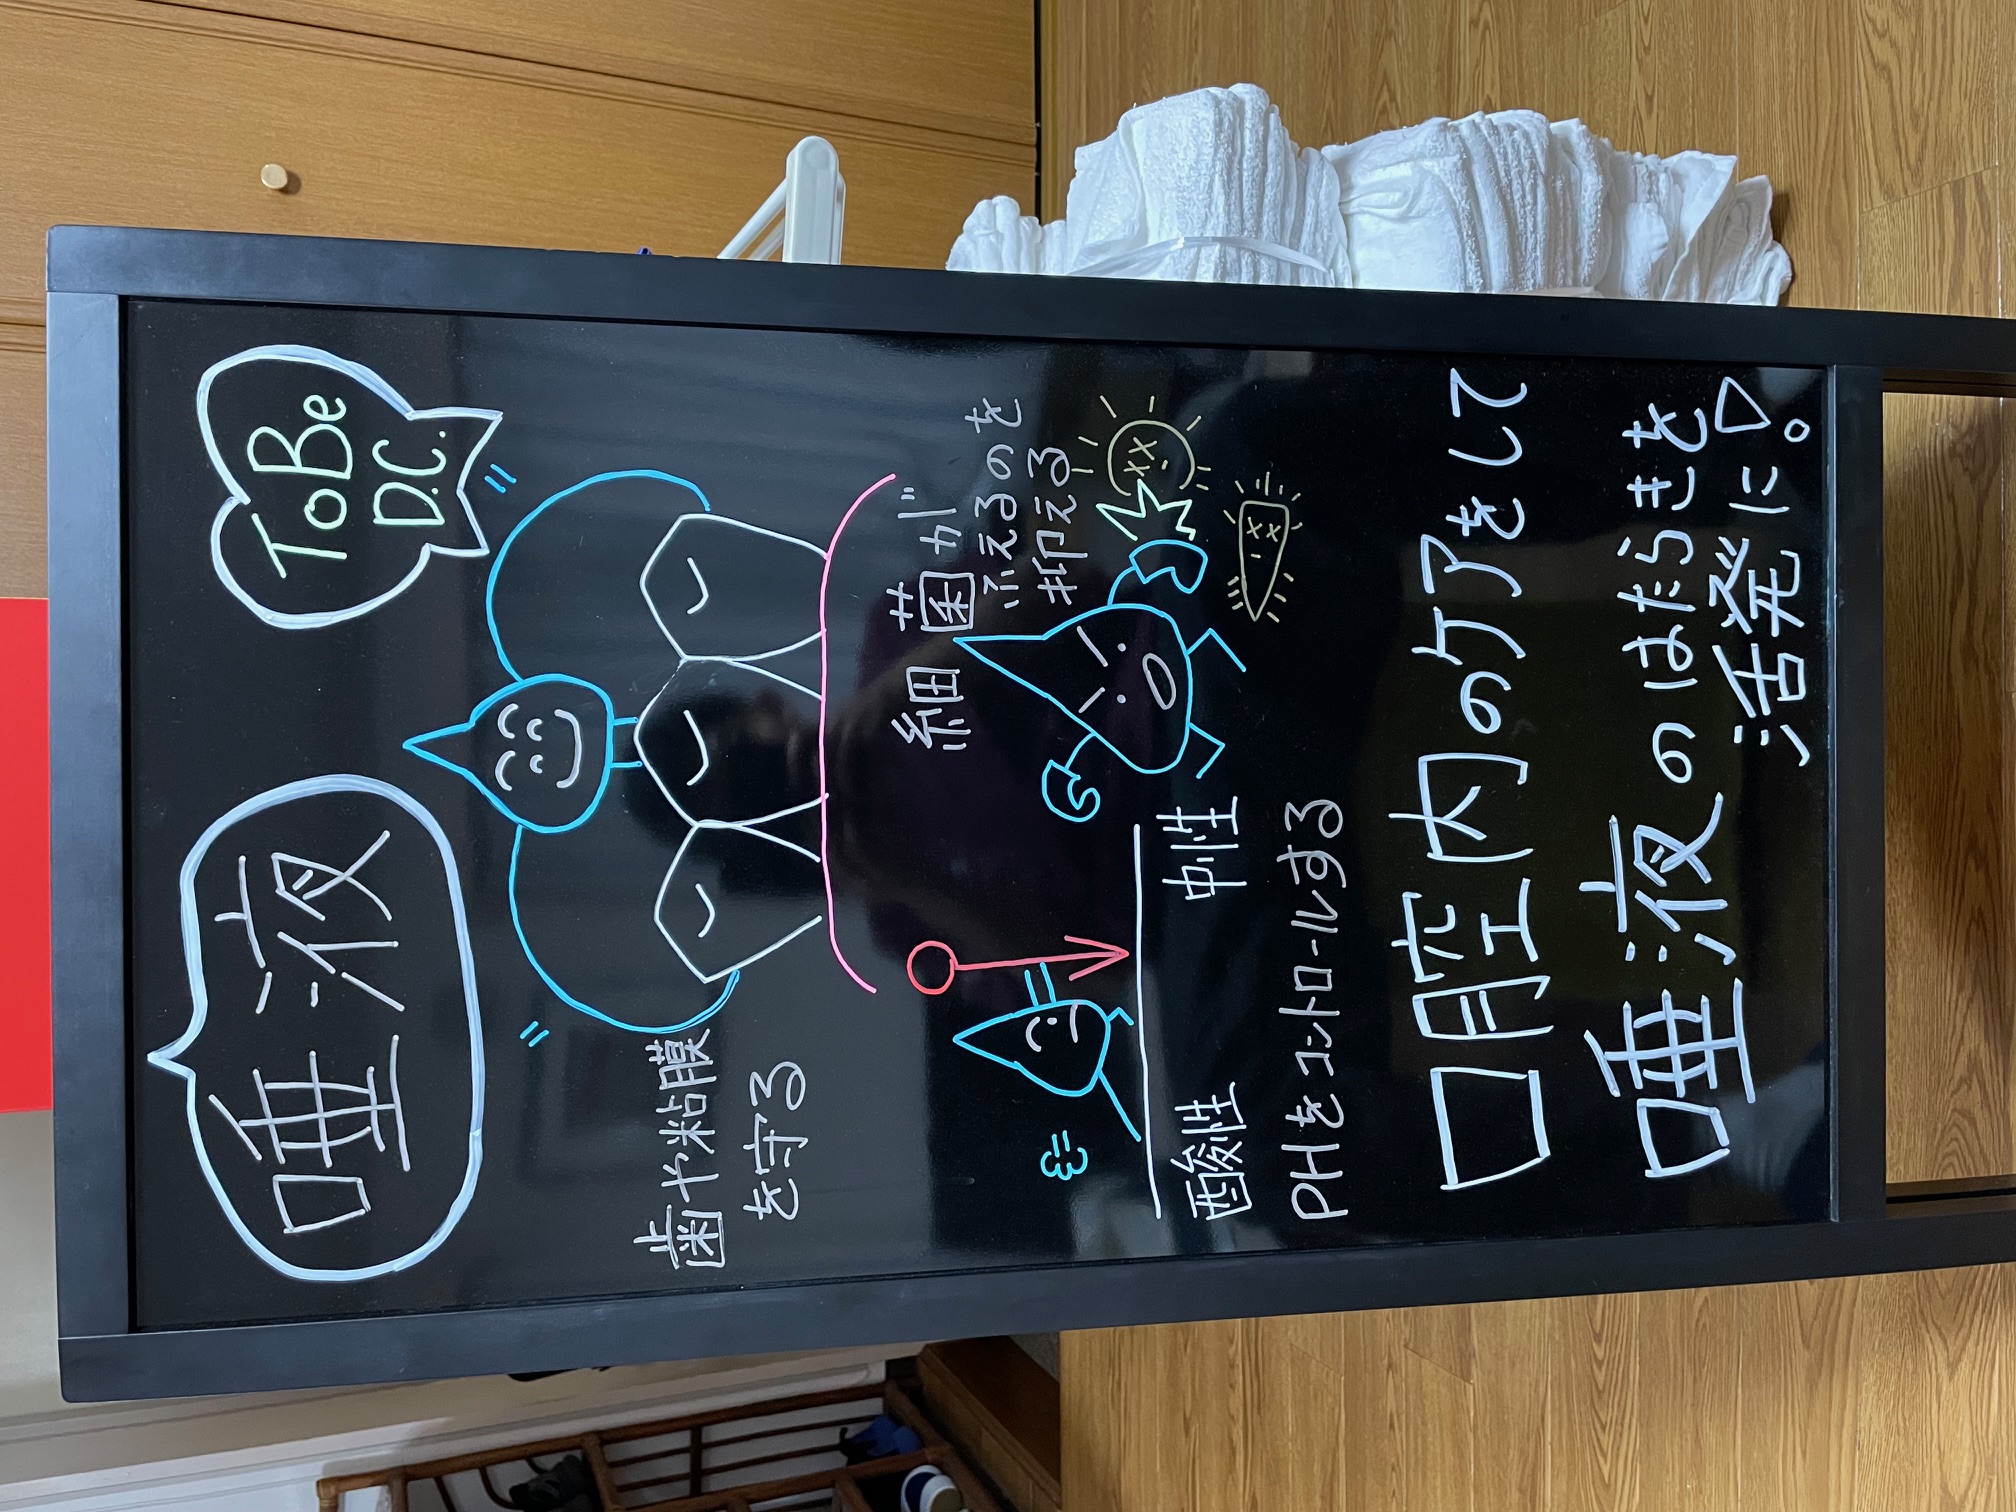 唾液
ToBe
D.C.
歯や粘膜
を守る
細菌が
ふえるのを
抑える
酸性
中性
PHをコントロールする
口腔内のケアをして
唾液のはたらきを
活発に▽。